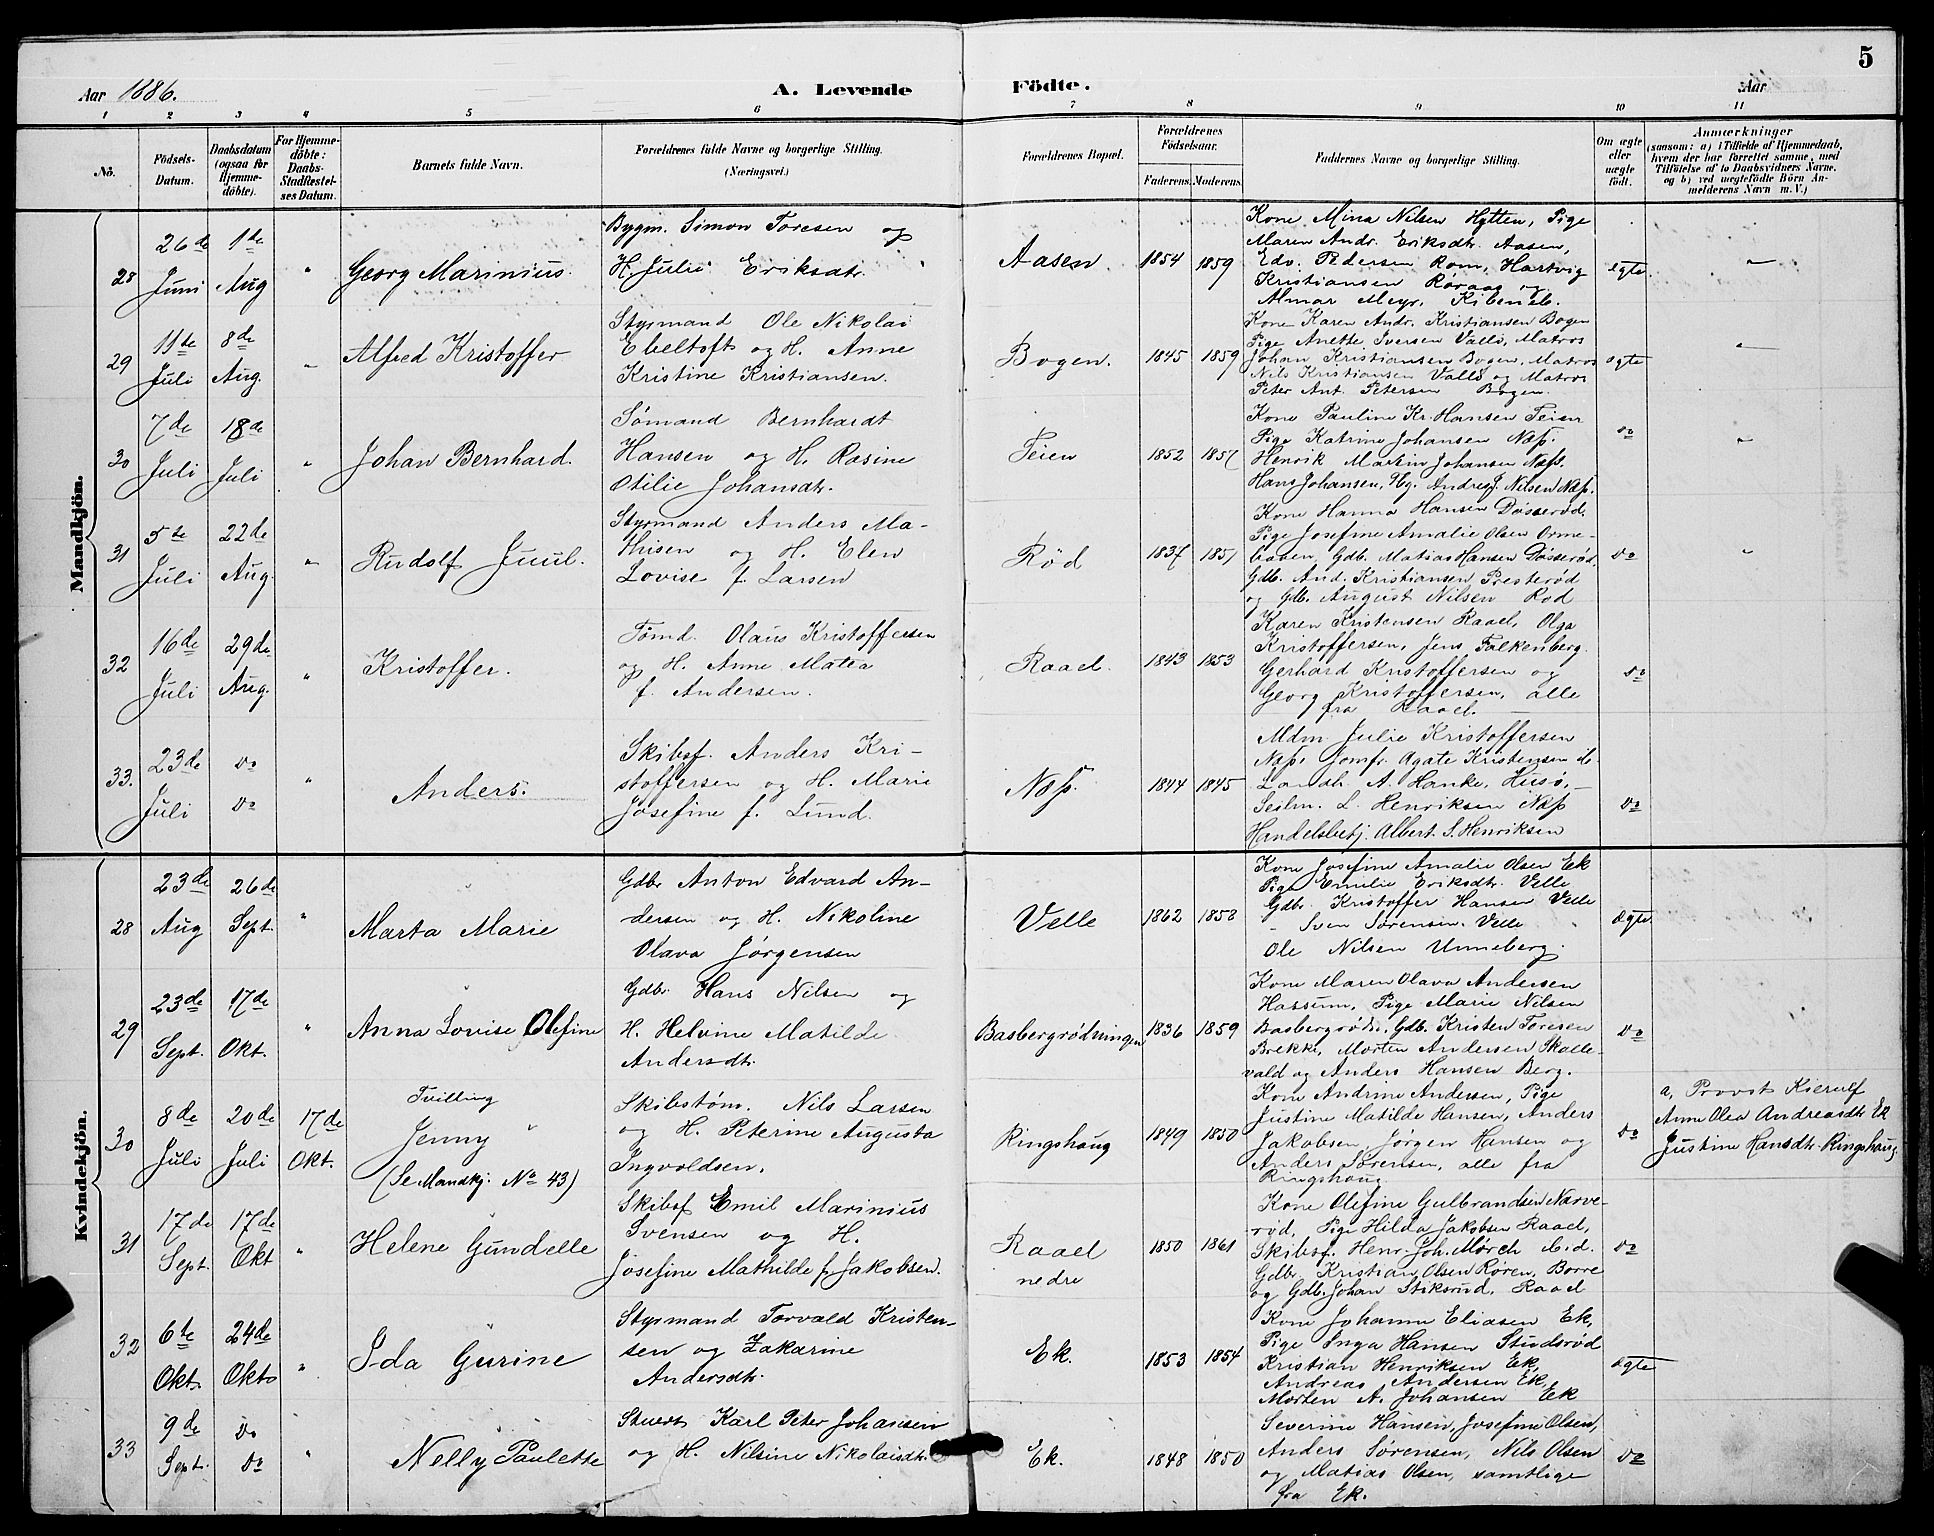 5
Aar 1886. A. Levende Födte. Aar
1 2 3 4 5 6 7 8 9 10 11
No.
Födsels-Datum.
Daabsdatum (ogsaa for Hjemmedöbte).
For Hjemmedöbte: Daabs-Stadfæstelses Datum.
Barnets fulde Navn.
Forældrenes fulde Navne og borgerlige Stilling.
(Næringsvei.)
Forældrenes Bopæl.
Forældrenes Födselsaar.
Faderens. Moderens.
Faddernes Navne og borgerlige Stilling.
Om ægte eller uægte födt.
Anmærkninger
(saasom: a) i Tilfælde af Hjemmedaab,
hvem der har forrettet samme, med
Tilföielse af to Daabsvidners Navne,
og b) ved uægtefödte Börn An-
melderens Navn m. V.)
Mandkjön.
28
26de Juni
1de Aug
"
Georg Marinius.
Bygm. Simon Toresen og
H. Julie Eriksdtr.
Aasen.
1854 1859
Kone Mina Nilsen Hytten, Pige
Maren Andr. Eriksdtr. Aasen,
Edv. Pedersen Rom, Hartvig
Kristiansen Røraas og
Almar Meyr,
ægte
"
29
11te Juli
8de Aug.
"
Alfred Kristoffer
Styrmand Ole Nikolai
Ebeltoft og H. Anne
Kristine Kristiansen.
Bogen.
1845 1859
Kone Karen Andr. Kristiansen Bogen
Pige Anette Iversen Vallø, Matros
Johan Kristiansen Bogen, Matros
Nils Kristiansen Vallø og Matros
Peter Ant. Petersen Bogen.
ægte
"
30
7de Juli
18de Juli
"
Johan Bernhard.
Sømand Bernhardt
Hansen og H. Rasine
Otilie Johansdtr.
Teien
1852 1857
Kone Pauline Kr. Hansen Teien
Pige Katrine Johansen Næss.
Henrik Martin Johansen Næss.
Hans Johansen, Hg. Andreas J. Nilsen Næss.
do
"
31
5te Juli
22de Aug.
"
Rudolf Juul.
Styrmand Anders Ma-
thisen og H. Elen
Lovise f. Larsen
Rød
1837 1851
Kone Hanna Hansen Døsserød.
Pige Josefine Amalie Olsen Orme-
baaen, Gdb. Matias Hansen Døsserød,
Gdb. And. Kristiansen, Presterød
og Gdb. August Nilsen Rød
do
"
32
16de Juli
29de Aug.
"
Kristoffer.
Tømd. Olaus Kristoffersen
og H. Anne Matea
f. Andersen.
Raael.
1843 1853
Karen Kristensen Raael, Olga
Kristoffersen, Jens Falkenberg.
Gerhard Kristoffersen og
Georg Kristoffersen, alle
fra Raael.
do
33.
23de Juli
do do
"
Anders.
Skibsf. Anders Kri-
stoffersen og H. Marie
Josefine f. Lund.
Næss.
1844 1845
Mdm. Julie Kristoffersen
Næss. Jomfr. Agate Kristensen do.
Landh. A. Hanke, Husø,
Seilm. L. Henriksen Næss
Handelsbetj. Albert. S. Henriksen
do
Kvindekjön.
28
23de Aug
26de Sept.
"
Marta Marie
Gdbr Anton Edvard An-
dersen og H. Nikoline
Olava Jørgensen
Velle
1862 1858
Kone Josefine Amalie Olsen Ek
Pige Emilie Eriksdtr. Velle
Gdbr. Kristoffer Hansen Velle
- Sven Sørensen. Velle
Ole Nilsen Unneberg.
Ægte
29
23de Sept.
17de Okt.
"
Anna Lovise Olefine
Gdbr. Hans Nilsen og
H. Helvine Matilde
Andersdtr.
Basbergrødningen
1836 1859
Kone Maren Olava Andersen
Hassum, Pige Marie Nilsen
Basbergrødn., Gdb. Kristen Toresen
Brekke, Morten Andersen Skalle-
vald og Anders Hansen Berg.
do
30
8de Juli
20de Juli
17de Okt.
Tvilling
Jenny
(Se Mandkj. No 43)
Skibstøm. Nils Larsen
og H. Peterine Augusta
Ingvoldsen.
Ringshaug
1849 1850
Kone Andrine Andersen, Pige
Justine Matilde Hansen, Anders
Jakobsen, Jørgen Hansen og
Anders Sørensen, alle fra
Ringshaug
do
a, Provst Kierulf
Anne Olea Andreasdtr Ek
Justine Hansdtr. Ringshaug
31
17de Sept.
17de Okt
"
Helene Gundelle
Skibsf Emil Marinius
Svensen og H.
Josefine Mathilde f. Jakobsen.
Raael
nedre
1850 1861
Kone Olefine Gulbrandsen Narve-
rød, Pige Hilda Jakobsen Raael,
Skibsf. Henr. Joh. Mørch ibid.
Gdbr. Kristian Olsen Røren, Borre
og Gdb. Johan Stiksrud, Raael
do
32
6te Okt.
24de Okto
"
Ida Gurine
Styrmand Torvald Kristen-
sen og Zakarine
Andersdtr.
Ek.
1853 1854
Kone Johanne Eliasen Ek,
Pige Inga Hansen Studsrød
Kristian Henriksen Ek,
Andreas Andersen Ek,
Morten A. Johansen Ek
Ægte
33
9de Sept.
do do
"
Nelly Paulette
Stuert Karl Peter Johansen
og H. Nilsine Nikolaisdtr.
Ek.
1848 1850
Severine Hansen, Josefine Olsen,
Anders Sørensen, Nils Olsen
og Matias Olsen, samtlige
fra Ek.
do